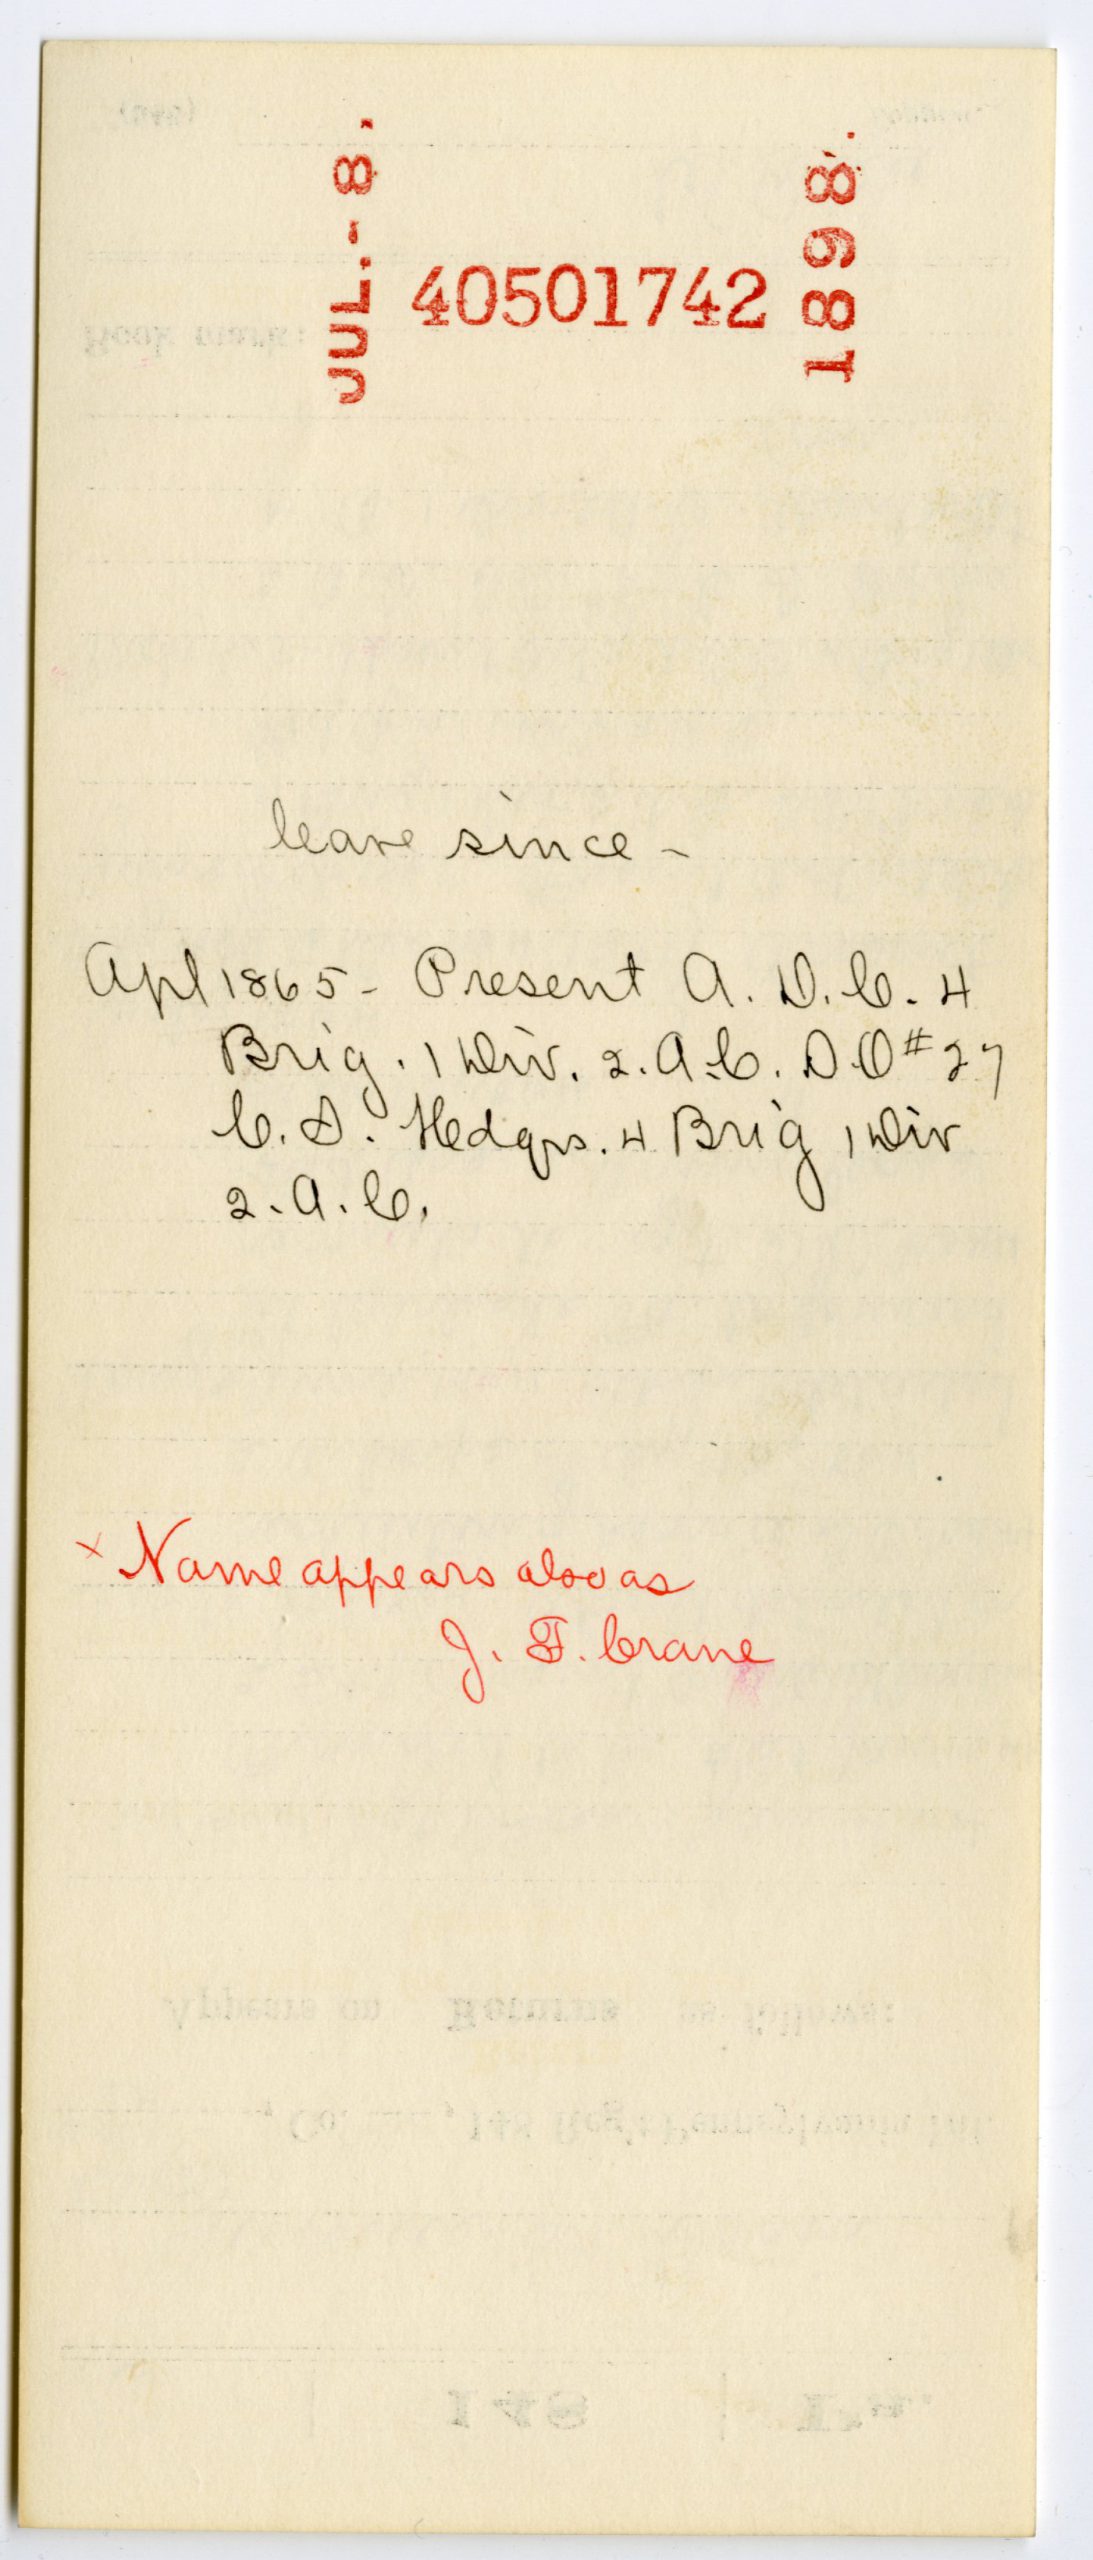 JUL.-8. 40501742 1898.
leave since -
Apl 1865 - Present A. D. C. 4
Brig. 1 Div. 2. A. C. S. O # 27
C. S. Hedqrs. 4 Brig 1 Div
2. A. C.
x Name appears also as
J. F. Crane